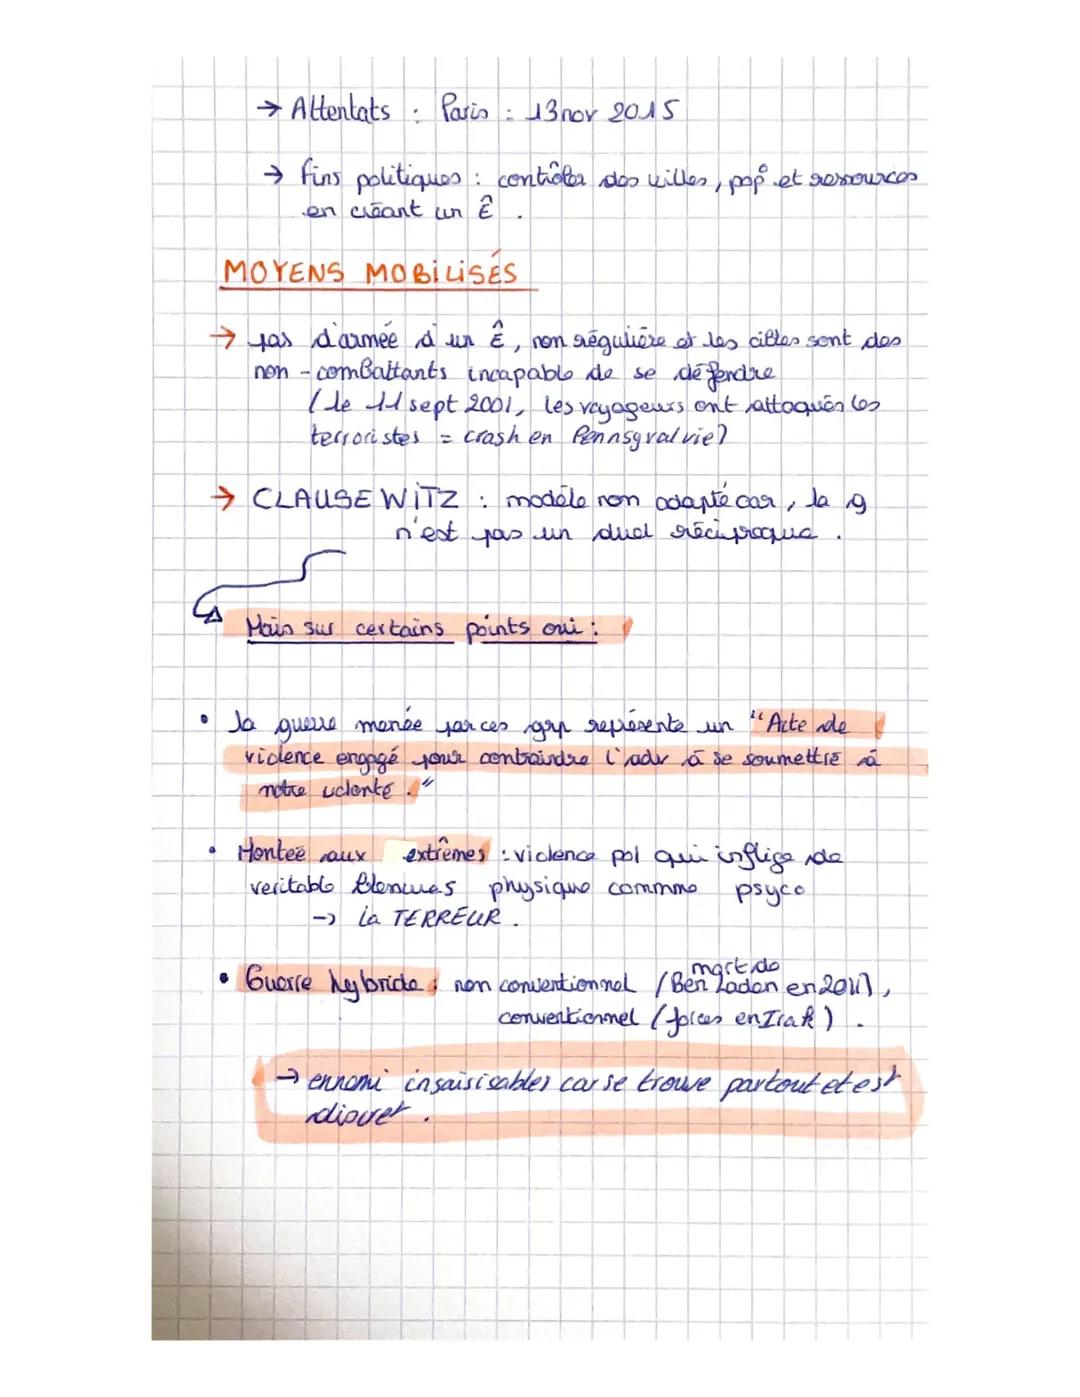 → Attentats : Paris : 13 nov 2015
→ fins politiques : contrôler des villes, pop° et ressources
en créant un Ê .
MOYENS MOBILISÉS
→ pas d'armée d'un Ê, non régulière et les cibles sont des
non-combattants incapable de se défendre
(le 11 sept 2001, les voyageurs ont attaqués les
terroristes = crash en Pennsylvalvie)
→ CLAUSEWITZ : modèle non adapté car, la g
n'est pas un duel réciproque .
Mais sur certains points oui :
• la guerre menée par ces grp représente un "Acte de
violence engagé pour contraindre l'adv à se soumettre à
notre volonté ."
• Montée aux extrêmes : violence pol qui inflige de
veritable blessures physique commme psyco
→ la TERREUR .
• Guerre hybride : non conventionnel (mort de Ben Laden en 2011),
conventionnel (forces en Irak) .
→ ennemi insaisisables car se trouve partout et est
discret .